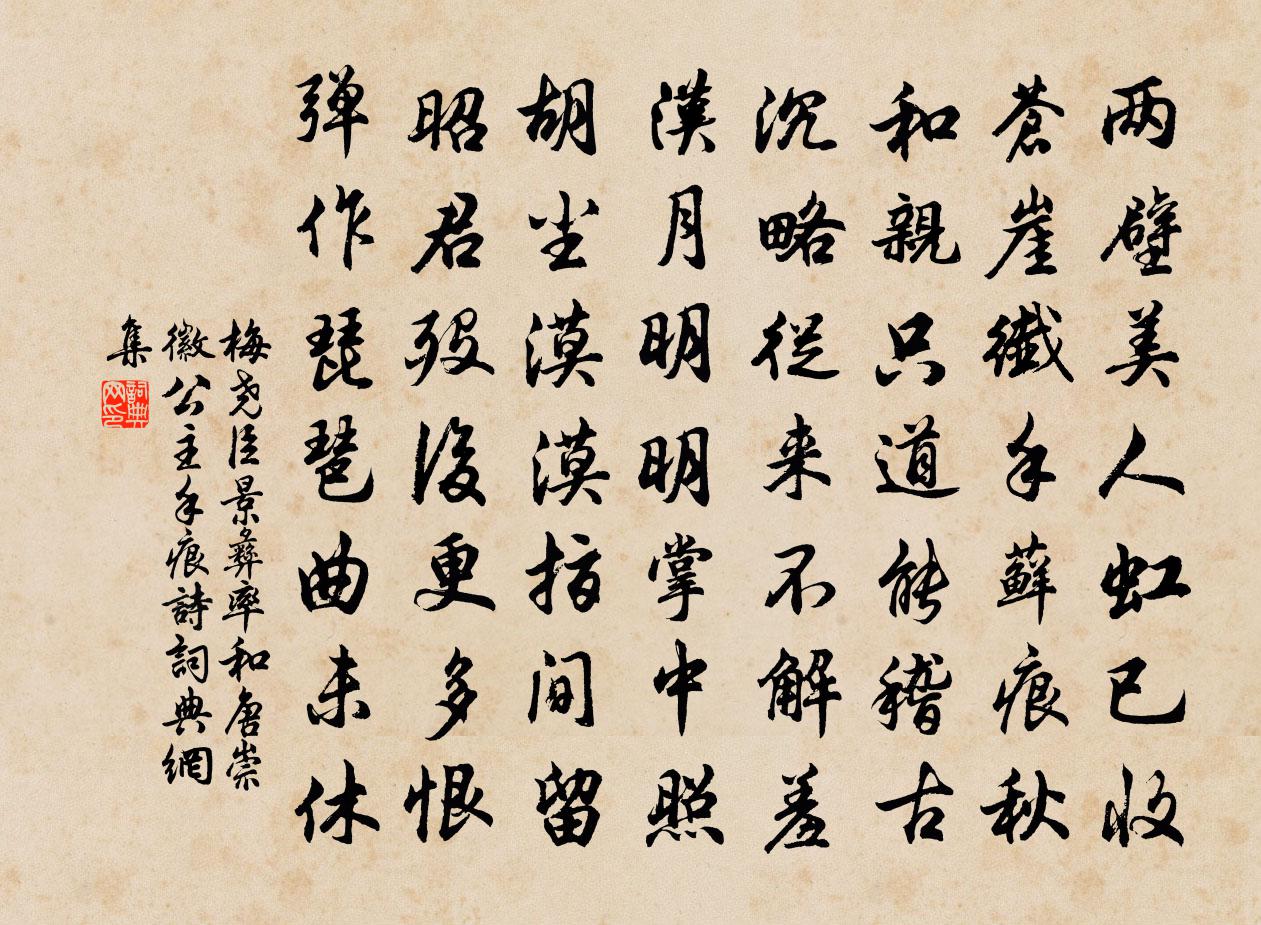 两壁美人虹已收
苍崖纤手藓痕秋
和親只道能稽古
沉略從来不解羞
漢月明明掌中照
胡尘漠漠指间留
昭君殁後更多恨
弹作琵琶曲未休
梅尧臣景彝率和唐崇
徽公主手痕詩詞典網
集
詞典
网印